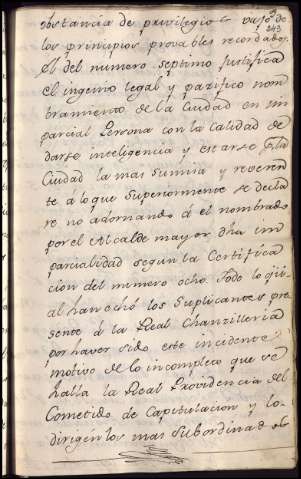 obstancia de privilegio y bajo de
243
los principios provables recordados.
El del numero septimo justifica
el ingenio legal y pazifico nom
bramiento de la Ciudad en im
parcial Persona con la calidad de
darse inteligencia y estarse
Ciudad la mas sumisa y reveren
te a lo que Superiormente se decla
re no adornando á el nombrado
por el Alcalde mayor dha im
parcialidad segun la Certifica
cion del numero ocho. Todo lo qũe
al han echó los Suplicantes pre
sente á la Real Chanzilleria
por haver sido este incidente
motivo de lo incompleto que se
halla la Real Providencia del
Cometido de Capitulacion y lo
dirigen los mas Subordinados